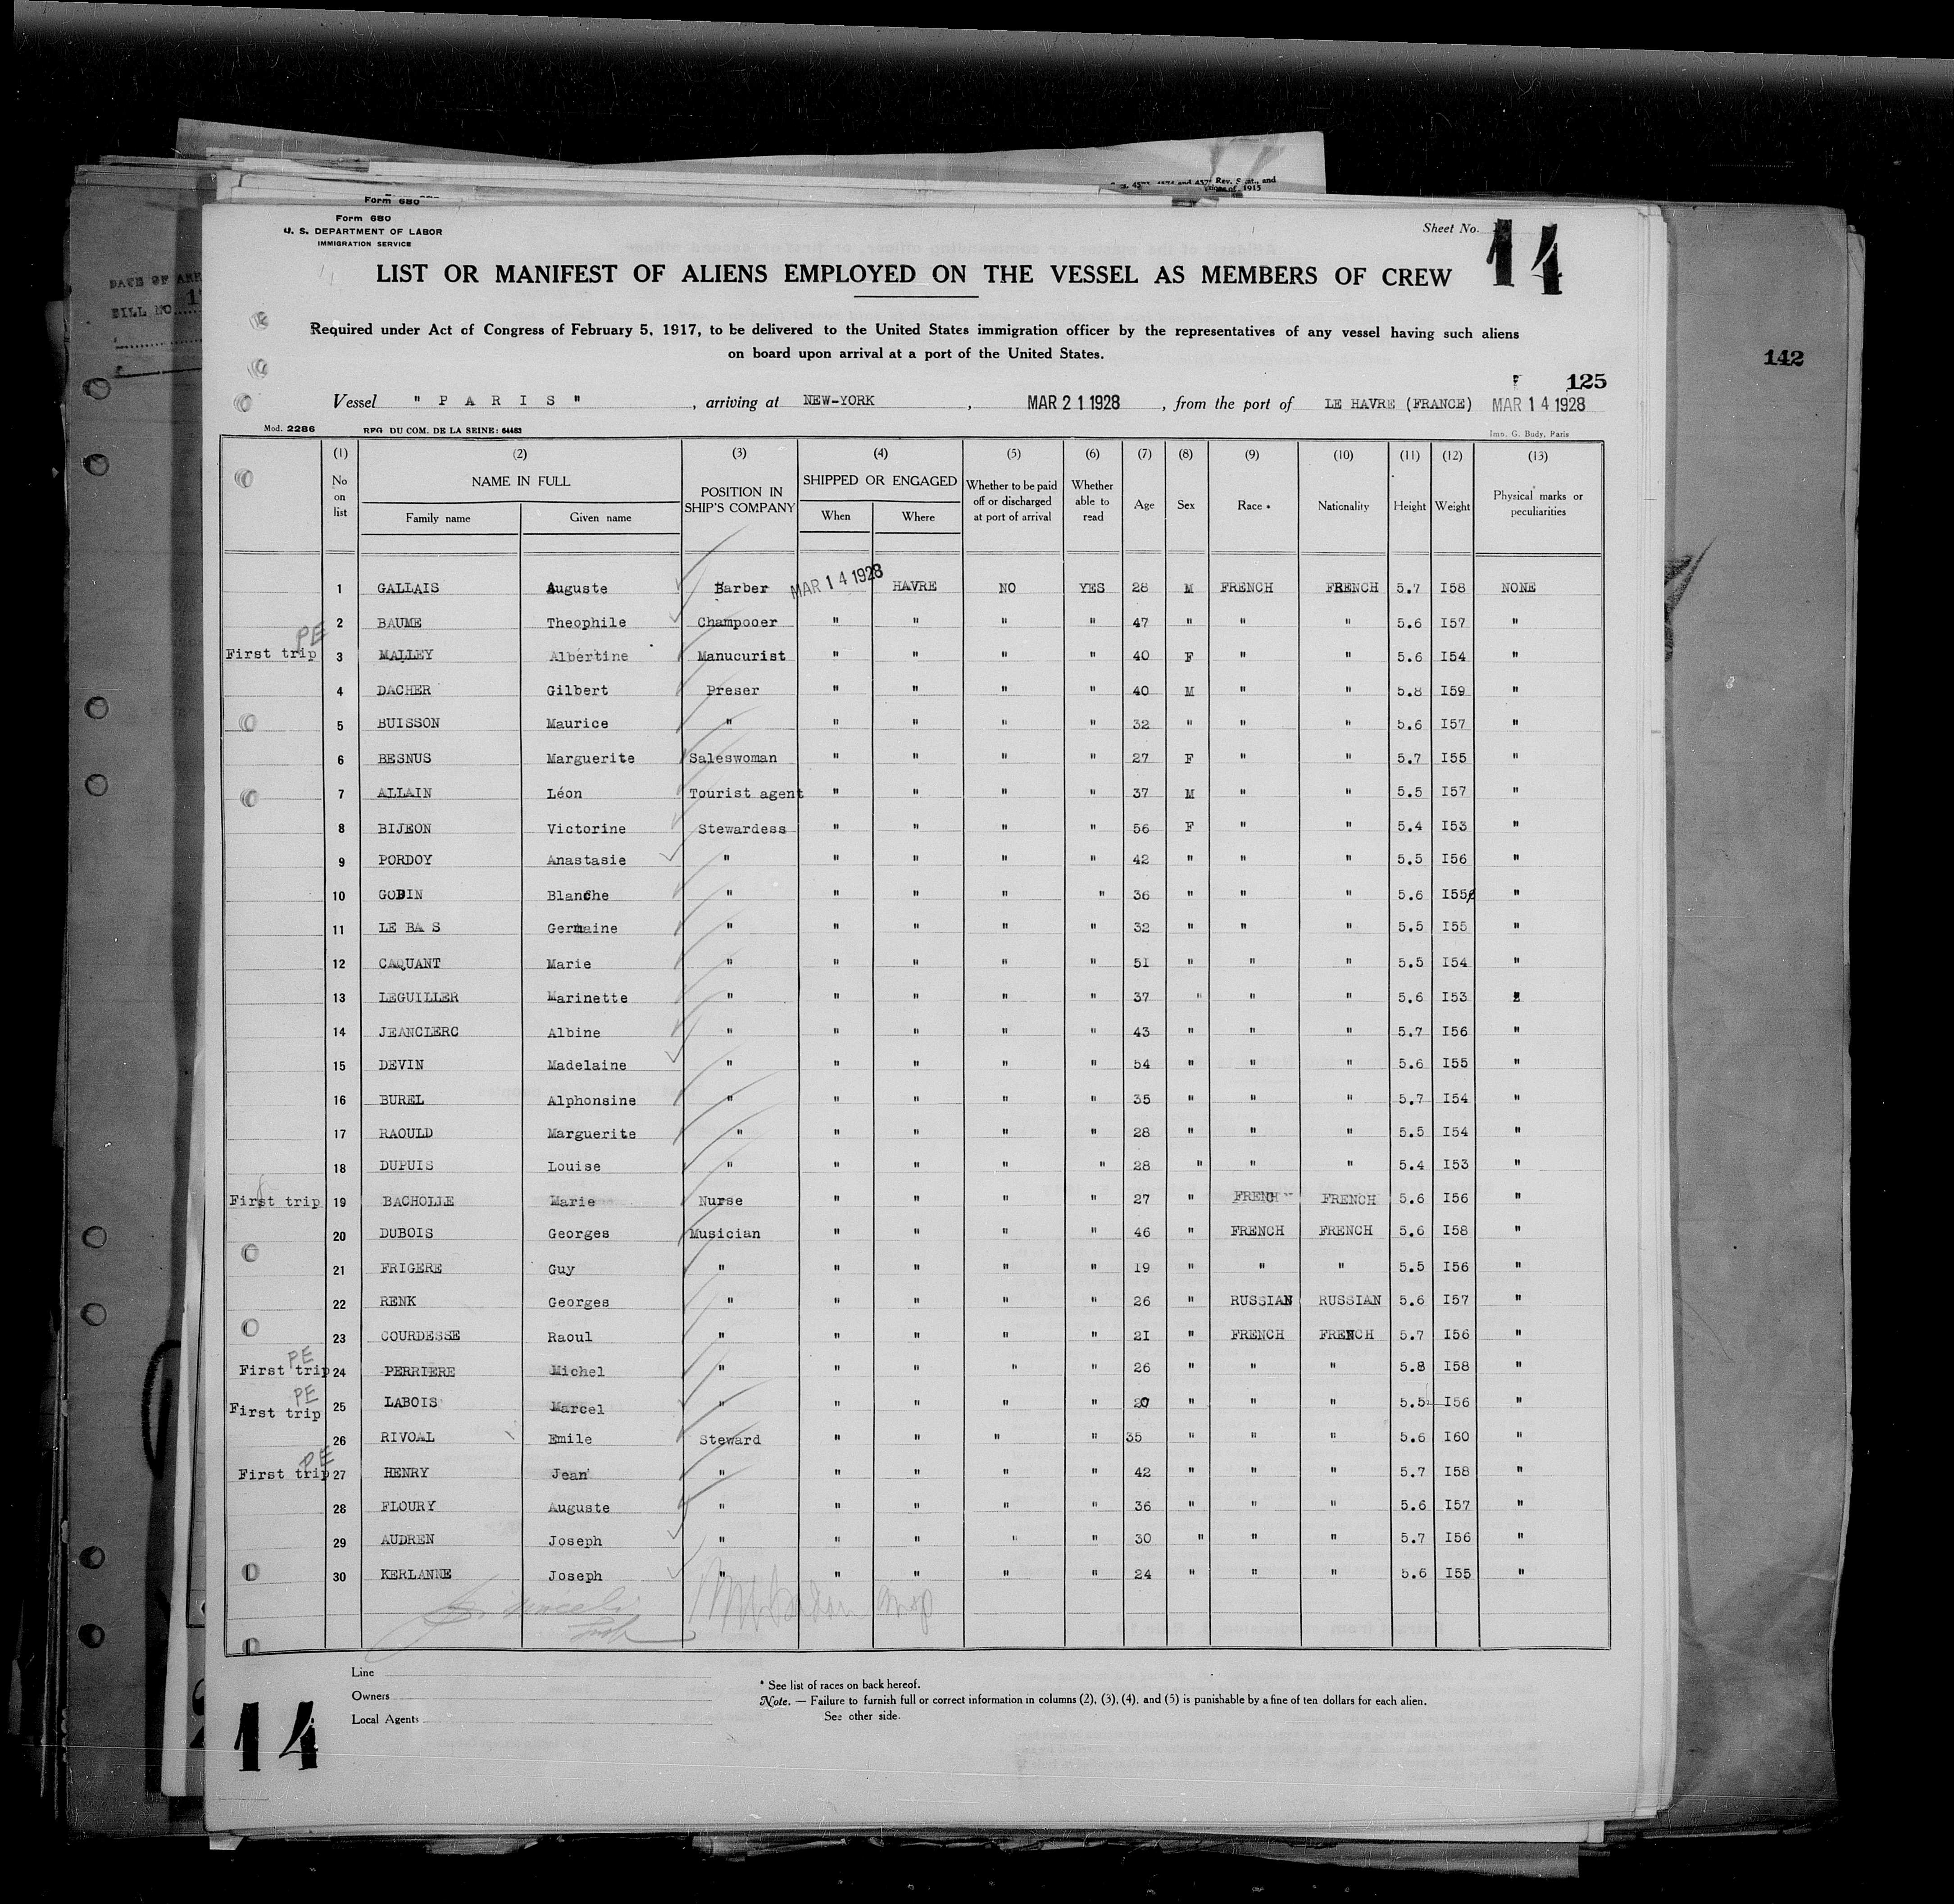 Form 680
Form 680
U. S. DEPARTMENT OF LABOR
IMMIGRATION SERVICE
Sheet No. 14
LIST OR MANIFEST OF ALIENS EMPLOYED ON THE VESSEL AS MEMBERS OF CREW
Required under Act of Congress of February 5, 1917, to be delivered to the United States immigration officer by the representatives of any vessel having such aliens
on board upon arrival at a port of the United States.
142
125
Vessel " P A R I S " , arriving at NEW-YORK , MAR 21 1928 , from the port of LE HAVRE (FRANCE) MAR 14 1928
Mod. 2286 RPG DU COM. DE LA SEINE: 64483 Imp. G. Budy, Paris
(1) (2) (3) (4) (5) (6) (7) (8) (9) (10) (11) (12) (13)
No on list NAME IN FULL Family name Given name POSITION IN SHIP'S COMPANY SHIPPED OR ENGAGED When Where Whether to be paid off or discharged at port of arrival Whether able to read Age Sex Race * Nationality Height Weight Physical marks or peculiarities
1 GALLAIS Auguste Barber MAR 14 1928 HAVRE NO YES 28 M FRENCH FRENCH 5.7 I58 NONE
2 BAUME Theophile Champooer " " " " 47 " " " 5.6 I57 "
PE
First trip 3 MALLEY Albertine Manucurist " " " " 40 F " " 5.6 I54 "
4 DACHER Gilbert Preser " " " " 40 M " " 5.8 I59 "
5 BUISSON Maurice " " " " " 32 " " " 5.6 I57 "
6 BESNUS Marguerite Saleswoman " " " " 27 F " " 5.7 I55 "
7 ALLAIN Léon Tourist agent " " " " 37 M " " 5.5 I57 "
8 BIJEON Victorine Stewardess " " " " 56 F " " 5.4 I53 "
9 PORDOY Anastasie " " " " " 42 " " " 5.5 I56 "
10 GODIN Blanche " " " " " 36 " " " 5.6 I55 "
11 LE BA S Germaine " " " " " 32 " " " 5.5 I55 "
12 CAQUANT Marie " " " " " 5I " " " 5.5 I54 "
13 LEGUILLER Marinette " " " " " 37 " " " 5.6 I53 "
14 JEANCLERC Albine " " " " " 43 " " " 5.7 I56 "
15 DEVIN Madelaine " " " " " 54 " " " 5.6 I55 "
16 BUREL Alphonsine " " " " " 35 " " " 5.7 I54 "
17 RAOULD Marguerite " " " " " 28 " " " 5.5 I54 "
18 DUPUIS Louise " " " " " 28 " " " 5.4 I53 "
First trip 19 BACHOLLE Marie Nurse " " " " 27 " FRENCH FRENCH 5.6 I56 "
20 DUBOIS Georges Musician " " " " 46 " FRENCH FRENCH 5.6 I58 "
21 FRIGERE Guy " " " " " 19 " " " 5.5 I56 "
22 RENK Georges " " " " " 26 " RUSSIAN RUSSIAN 5.6 I57 "
23 COURDESSE Raoul " " " " " 2I " FRENCH FRENCH 5.7 I56 "
PE
First trip 24 PERRIERE Michel " " " " " 26 " " " 5.8 I58 "
PE
First trip 25 LABOIS Marcel " " " " " 20 " " " 5.5 I56 "
26 RIVOAL Emile Steward " " " " 35 " " " 5.6 I60 "
PE
First trip 27 HENRY Jean " " " " " 42 " " " 5.7 I58 "
28 FLOURY Auguste " " " " " 36 " " " 5.6 I57 "
29 AUDREN Joseph " " " " " 30 " " " 5.7 I56 "
30 KERLANNE Joseph " " " " " 24 " " " 5.6 I55 "
Line
Owners
Local Agents
* See list of races on back hereof.
Note. — Failure to furnish full or correct information in columns (2), (3), (4), and (5) is punishable by a fine of ten dollars for each alien.
See other side.
14